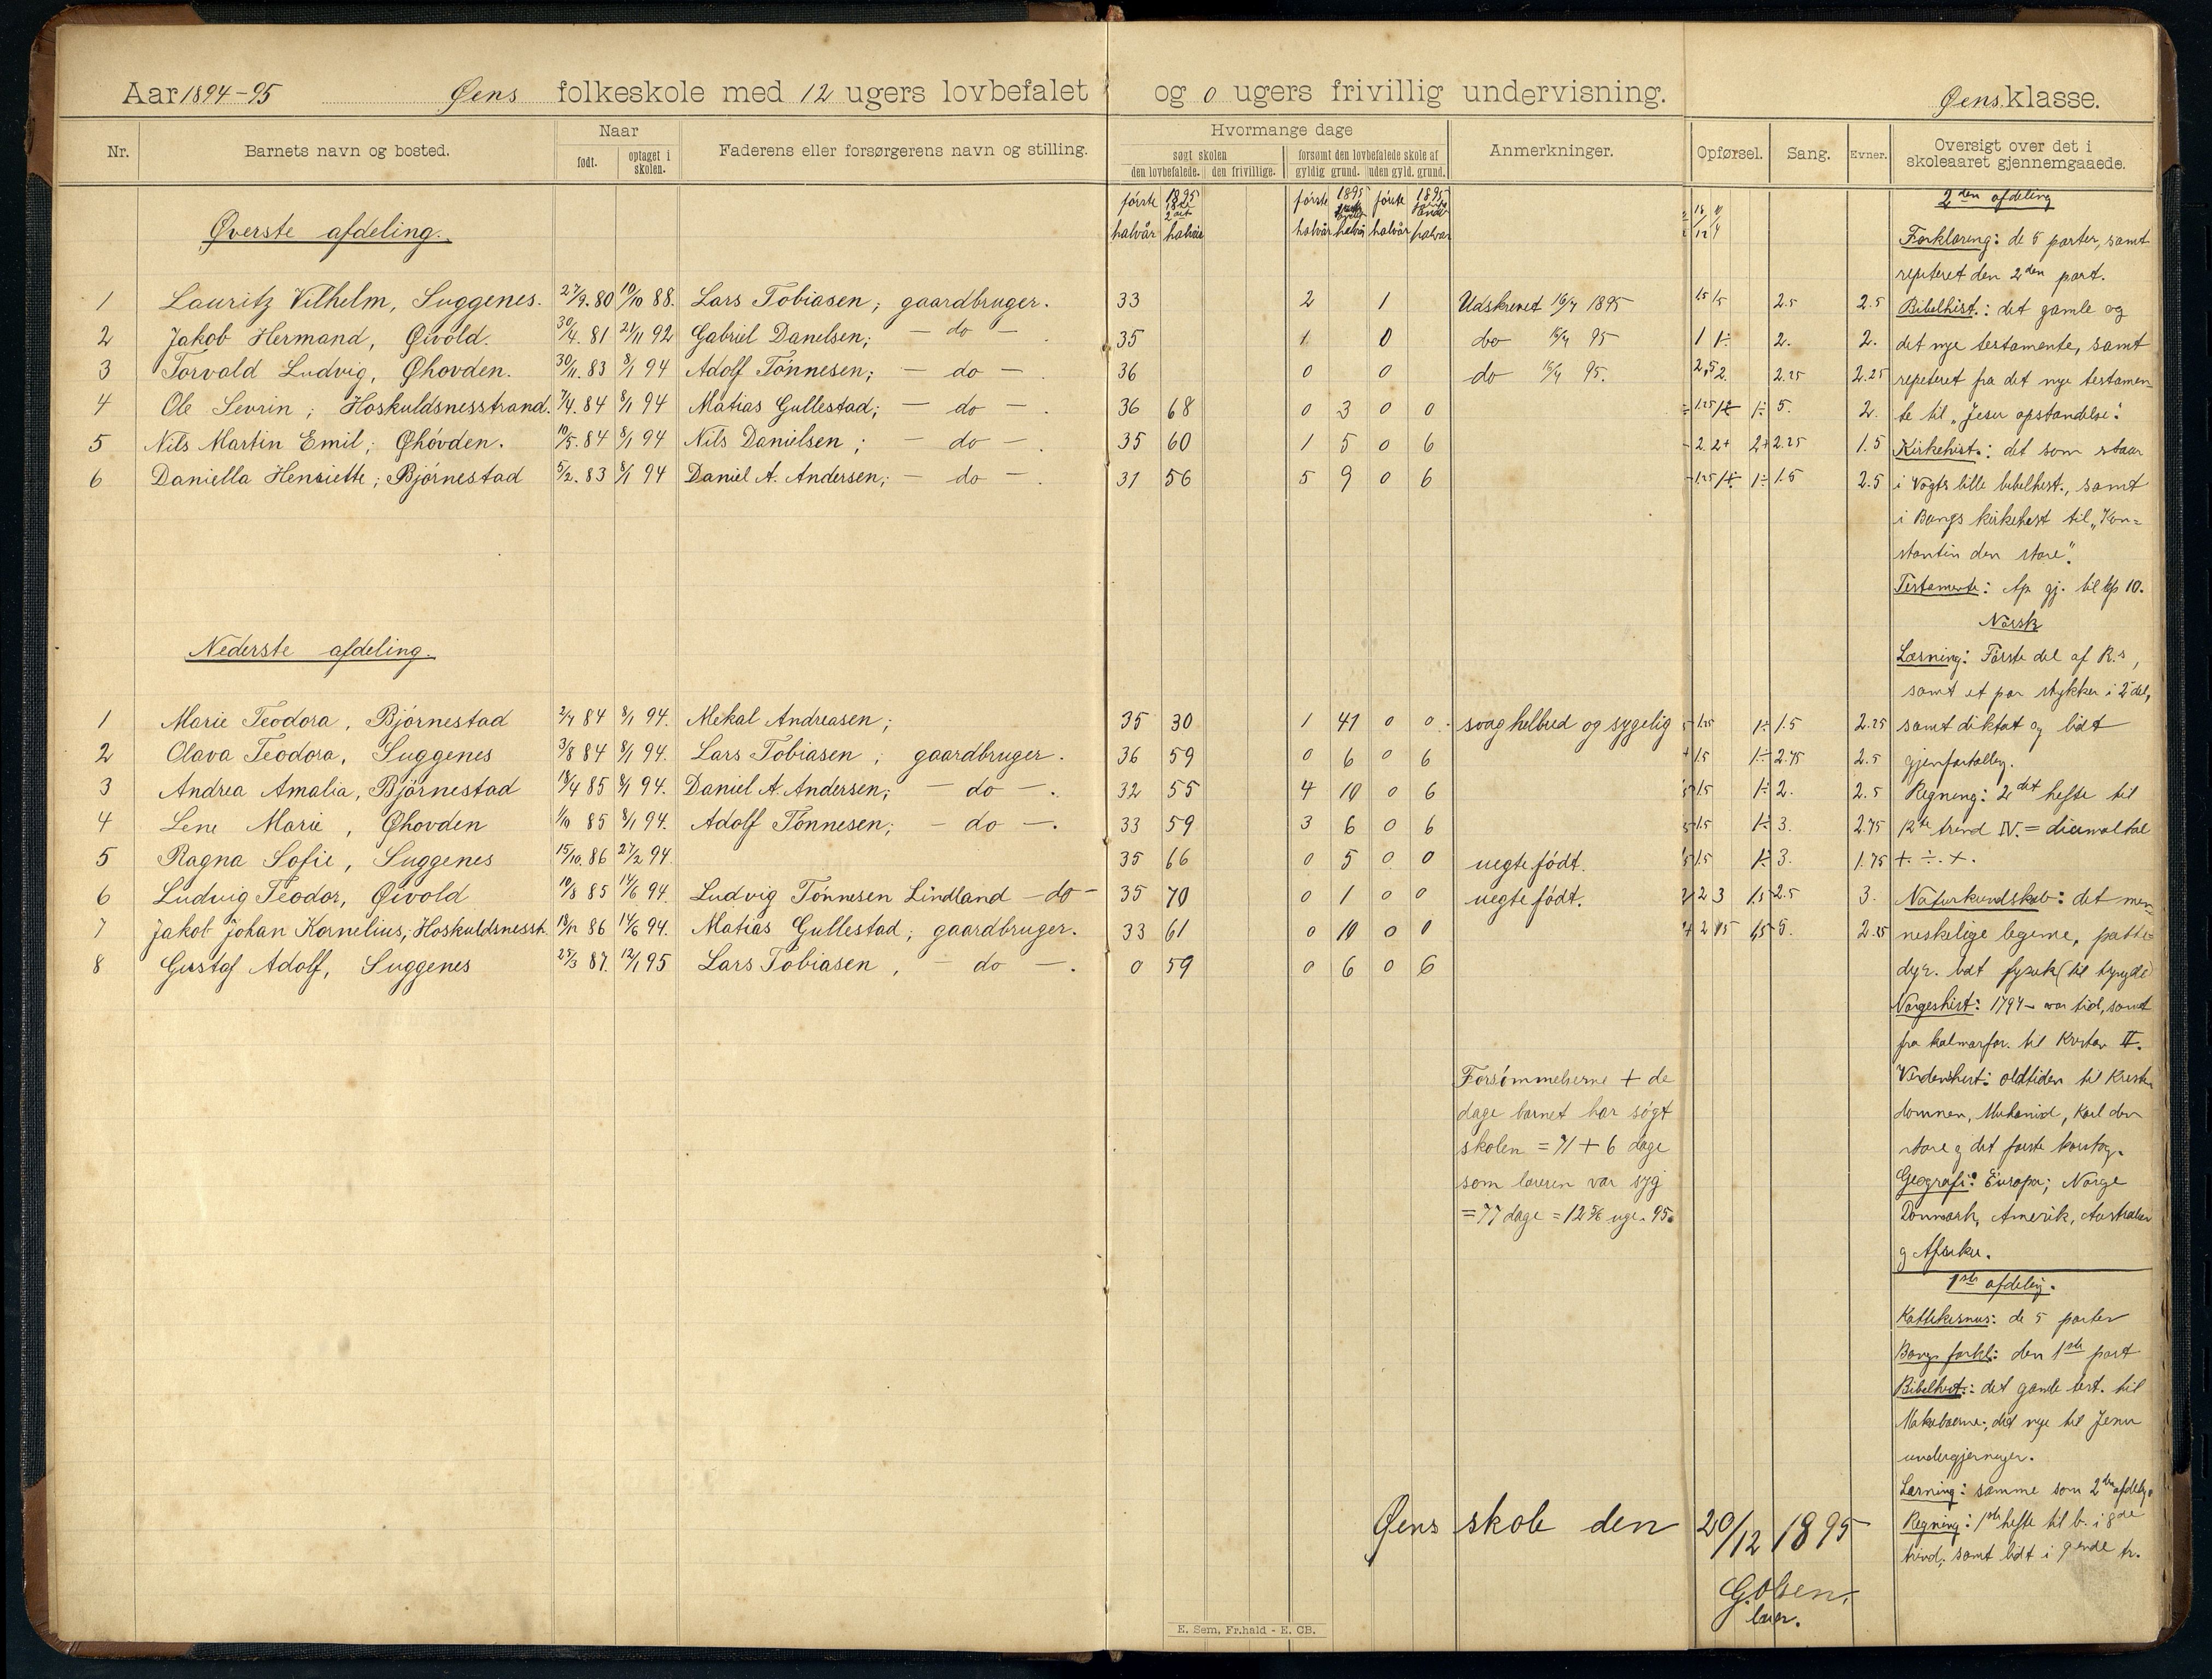 Aar 1894-95 Øens folkeskole med 12 ugers lovbefalet og 0 ugers frivillig undervisning. Øens klasse.
Nr. Barnets navn og bosted. Naar født. optaget i skolen. Faderens eller forsørgerens navn og stilling.
Hvormange dage søgt skolen den lovbefalede. den frivillige. forsømt den lovbefalede skole af gyldig grund. uden gyld. grund. Anmerkninger. Opførsel. Sang. Evner. Oversigt over det i skoleaaret gjennemgaaede.
første halvår 1895 første halvår 1895 første halvår 1895
Øverste afdeling.
1 Lauritz Vilhelm, Suggenes. 27/9. 80 10/10 88. Lars Tobiasen; gaardbruger. 33 2 1 Udskrevet 16/4 1895 2.5 2.5
2 Jakob Hermand, Øivold. 30/4. 81 21/11 92 Gabriel Danelsen; - do - 35 1 0 do 16/4 95 2. 2.
3 Torvald Ludvig, Øhovden. 30/11. 83 8/1 94 Adolf Tønnesen; - do - 36 0 0 do 16/4 95. 2.25 2.25
4 Ole Sevrin; Hoskuldsnesstrand. 7/4. 84 8/1 94 Matias Gullestad; - do - 36 68 0 3 0 0 5. 2.
5 Nils Martin Emil; Øhøvden. 10/5. 84 8/1 94 Nils Danielsen; - do - 35 60 1 5 0 6 2.25 1.5
6 Daniella Henriette; Bjørnestad 5/2. 83 8/1 94 Daniel A. Andersen; - do - 31 56 5 9 0 6 1.5 2.5
Nederste afdeling.
1 Marie Teodora, Bjørnestad 2/7 84 8/1 94. Mekal Andreasen; 35 30 1 41 0 0 svag helbred og sygelig 1.5 2.25
2 Olava Teodora, Suggenes 3/8 84 8/1 94. Lars Tobiasen; gaardbruger. 36 59 0 6 0 6 2.75 2.5
3 Andrea Amalia, Bjørnestad 18/4 85 8/1 94. Daniel A. Andersen; - do -. 32 55 4 10 0 6 2. 2.5
4 Lene Marie, Øhovden 1/10 85 8/1 94. Adolf Tønnesen; - do -. 33 59 3 6 0 6 3. 2.75
5 Ragna Sofie, Suggenes 15/10. 86 27/2 94. 35 66 0 5 0 0 uegte født. 3. 1.75
6 Ludvig Teodor, Øivold 10/8 85 14/6 94. Ludvig Tønnesen Lindland - do - 35 70 0 1 0 0 uegte født. 2.5 3.
7 Jakob Johan Kornelius, Hoskuldsnesst. 86 14/6 94. Matias Gullestad; gaardbruger. 33 61 0 10 0 0 5. 2.25
8 Gustaf Adolf, Suggenes 25/3 87. 12/1 95 Lars Tobiasen, - do -. 0 59 0 6 0 6
Forsømmelserne + de
dage barnet har søgt
skolen = 71 + 6 dage
som læreren var syg
= 77 dage = 12 5/6 uge. 95.
2den afdeling
Forklaring: de 5 parter, samt
repeteret den 2den part.
Bibelhist.: det gamle og
det nye testamente, samt
repeteret fra det nye testamen
te til "Jesu opstandelse".
Kirkehist.: det som staar
i Vogts lille bibelhist., samt
i Bangs kirkehist til "Kon=
stantin den store".
Testamente: Ap gj. til kp 10.
Norsk
Læsning: Første del af R.s,
samt et par stykker i 2 del,
samt diktat og lidt
gjenfortælling.
Regning: 2det hefte til
12te trind IV. = decimaltal
+. ÷. ×.
Naturkundskab: det men
neskelige legeme, patte=
dyr. lidt fysik (til tyngde)
Norgeshist: 1794 - vor tid, samt
fra kalmarfor. til Kristian II.
Verdenshist: oldtiden til Kristen
dommen, Muhamed, Karl den
store og det første korstog.
Geografi: Europa; Norge
Danmark, Amerik, Australien
og Afrika.
1ste afdeling.
Kattekismus: de 5 parter
Bangs forkl: den 1ste part
Bibelhist.: det gamle test. til
Makabæerne; det nye til Jesu
undergjerninger.
Læsning: samme som 2den afdeling
Regning: 1ste hefte til b. i 8de
trind, samt lidt i 9ende tr.
Øens skole den 20/12 1895
G. Olsen.
lærer.
E. Sem, Fr.hald - E. CB.